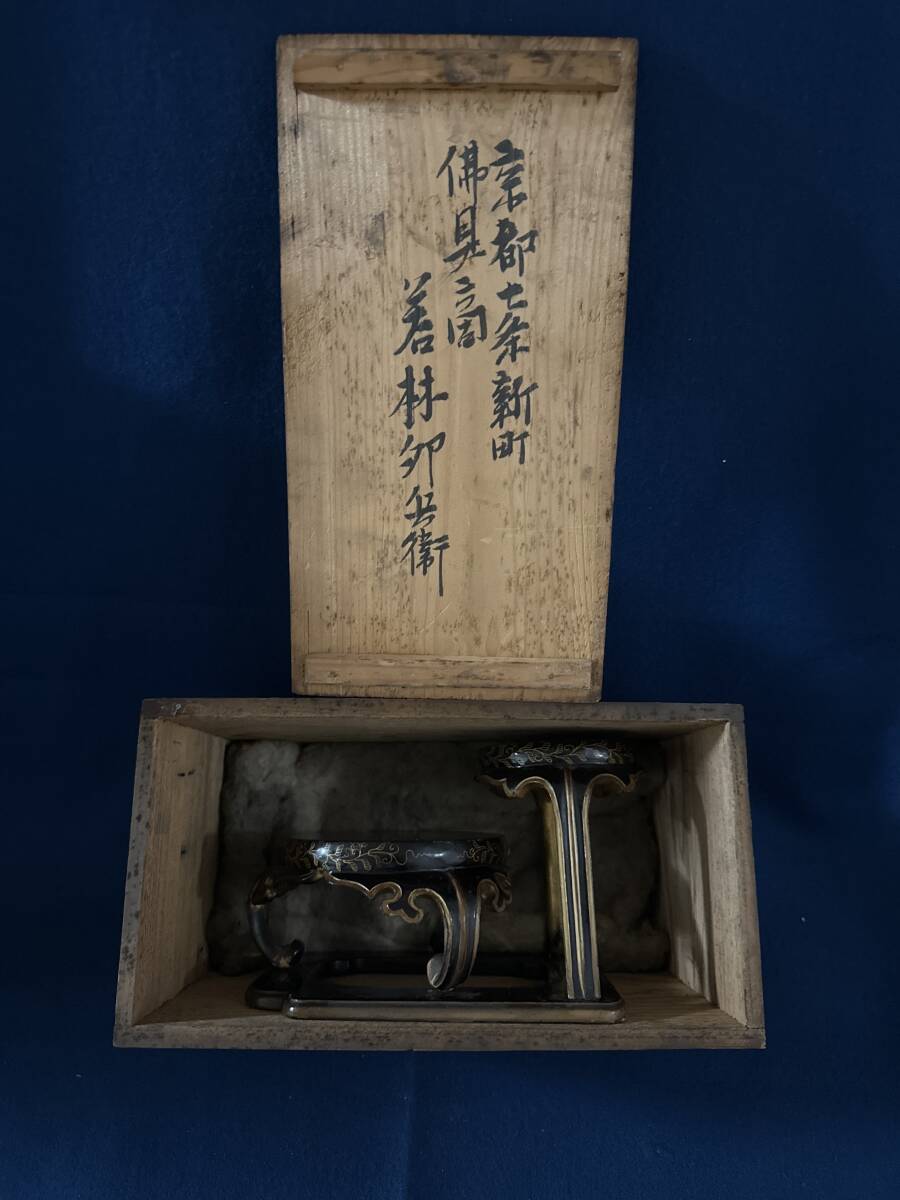 京都七条新町
佛具商
若林卯兵衛